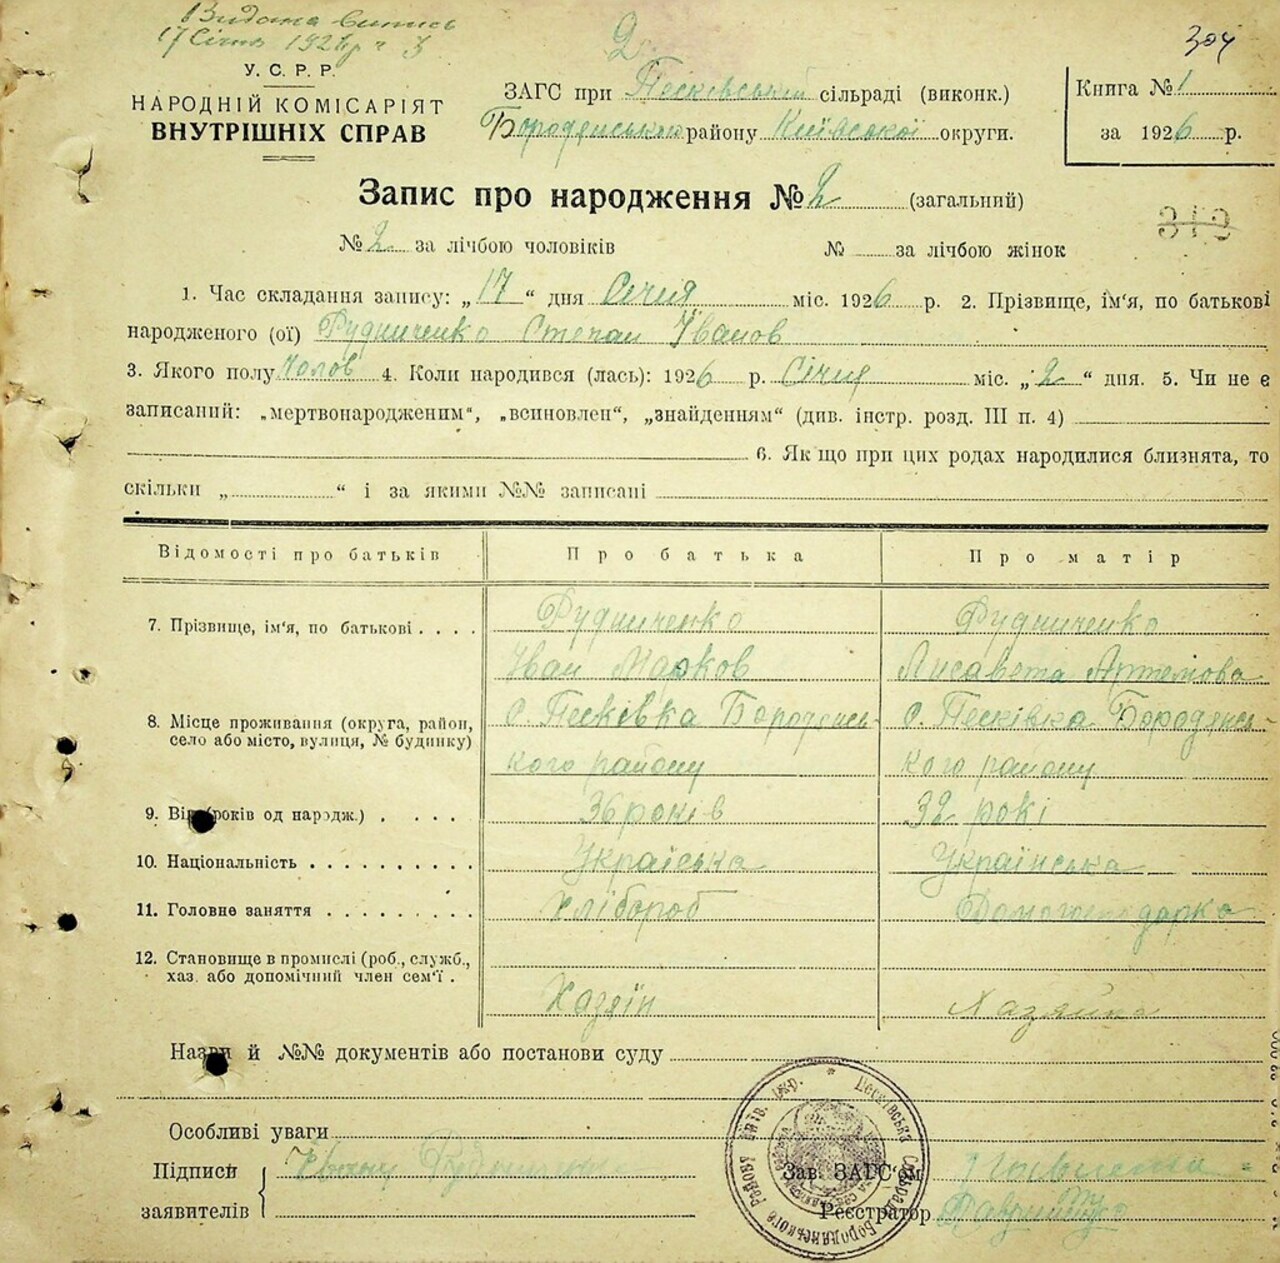 Видана випись
17 Січня
304
У. С. Р. Р.
НАРОДНІЙ КОМІСАРІЯТ
ВНУТРІШНІХ СПРАВ
ЗАГС при Песківський сільраді (виконк.)
Бородянського району Київської округи.
Книга № 1
за 1926 р.
Запис про народження № 2 (загальний)
312
№ 2 за лічбою чоловіків № за лічбою жінок
1. Час складання запису: „17“ дня Січня міс. 1926 р. 2. Прізвище, ім'я, по батькові
народженого (ої) Рудниченко Степан Іванов
3. Якого полу Чолов 4. Коли народився (лась): 1926 р. Січня міс. „2“ дня. 5. Чи не є
записаний: „мертвонародженим“, „всиновлен“, „знайденням“ (див. інстр. розд. III п. 4)
6. Як що при цих родах народилися близнята, то
скільки „ “ і за якими №№ записані
Відомості про батьків Про батька Про матір
7. Прізвище, ім'я, по батькові . . . . Рудниченко Рудниченко
Іван Марков Лисавета Артемова
8. Місце проживання (округа, район, с. Песківка Бородянсь- с. Песківка Бородянсь-
село або місто, вулиця, № будинку)
кого району кого району
9. Вік (років од нарадж.) . . . . 36 років 32 рокі
10. Національність . . . . . . . . . Украіська Українська
11. Головне заняття . . . . . . . . Хлібороб Домогосподарка
12. Становище в промислі (роб., служб.,
хаз. або допомічний член сем'ї .
Хазяїн Хазяйка
Назви й №№ документів або постанови суду
Особливі уваги
Підписи
заявителів
Зав. ЗАГС'ом
Реєстратор
* Песківська Сільрада Бородянського Району Київ. Окр.